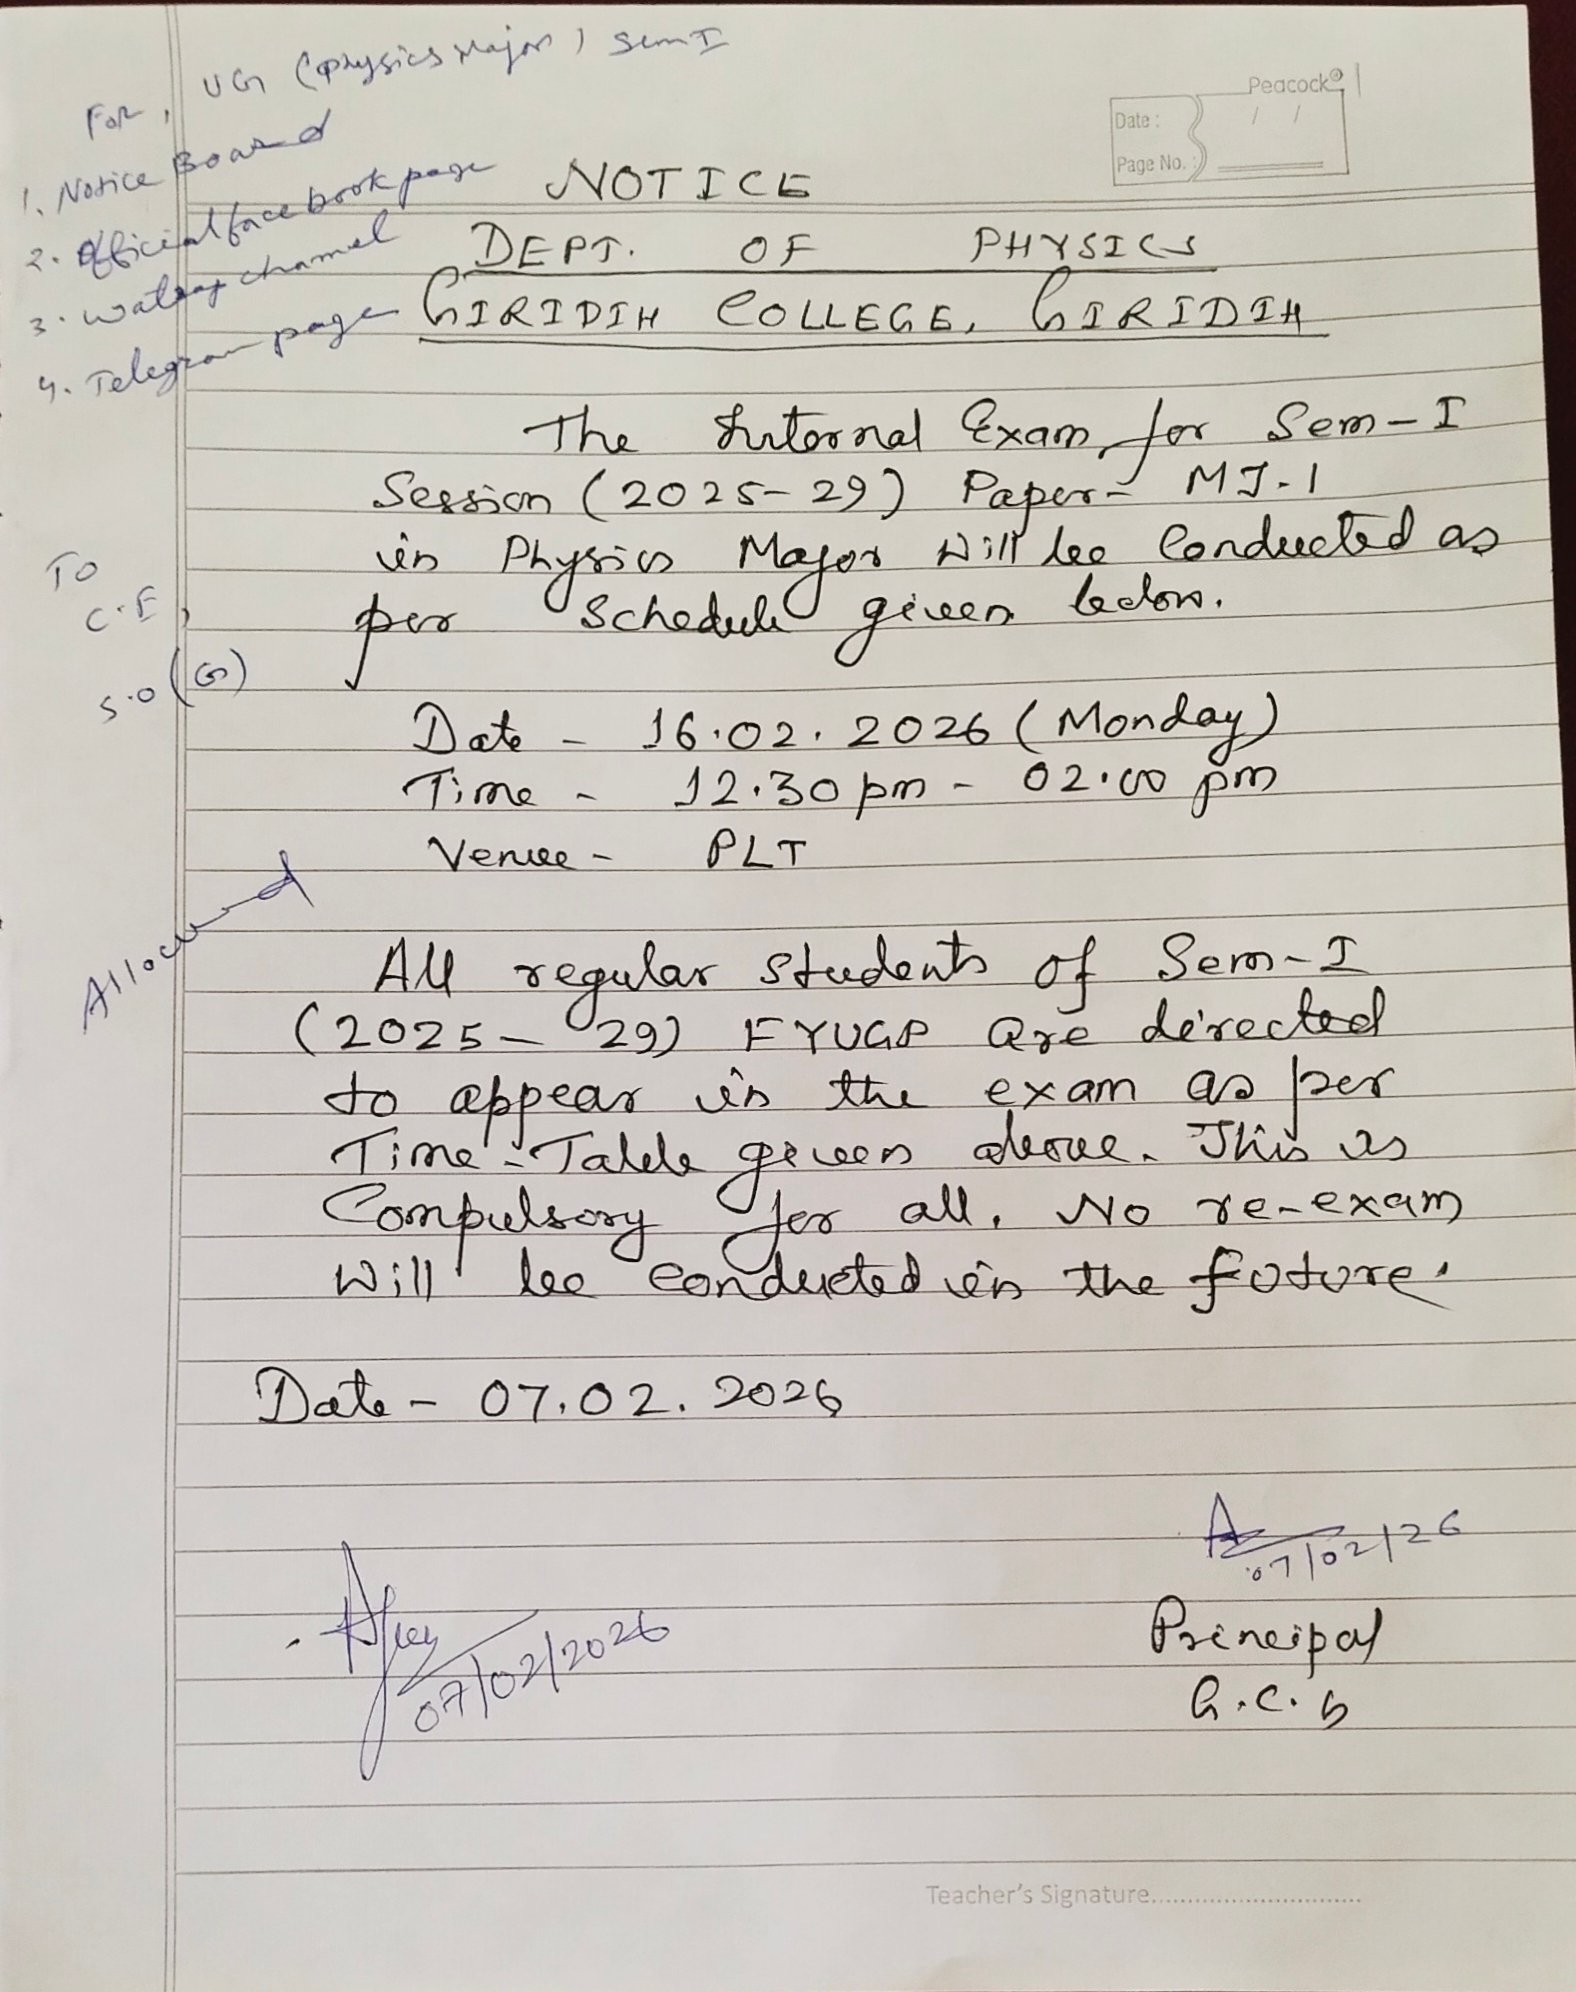 For, UG (Physics Major) Sem I
1. Notice Board
2. Official facebook page
3. Watsap channel
4. Telegram page
Peacock
Date : / /
Page No. :
NOTICE
DEPT. OF PHYSICS
GIRIDIH COLLEGE, GIRIDIH
The Internal Exam for Sem-I
Session (2025-29) Paper- MJ-1
in Physics Major Will be Conducted as
per Schedule given below.
To
C.E,
S.O (G)
Date - 16.02.2026 (Monday)
Time - 12.30 pm - 02.00 pm
Venue - PLT
Allowed
All regular students of Sem-I
(2025-29) FYUGP are directed
to appear in the exam as per
Time-Table given above. This is
Compulsory for all. No re-exam
Will be conducted in the future.
Date - 07.02.2026
07/02/26
07/02/2026
Principal
G.C.G
Teacher's Signature..............................